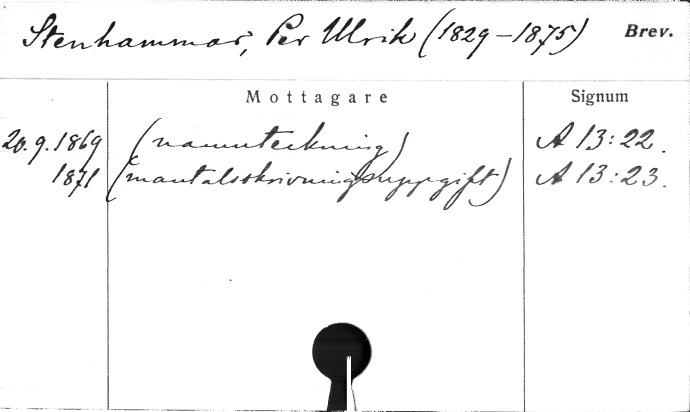 Stenhammar, Per Ulrik (1829–1875) Brev.
Mottagare Signum
20.9.1869 (namnteckning) A 13:22.
1871 (mantalsskrivningsuppgift) A 13:23.